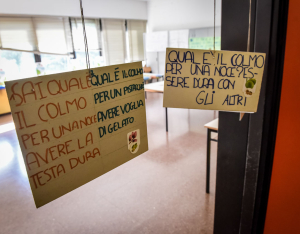 SAI QUALE
IL COLMO
PER UNA NOCE
AVERE LA
TESTA DURA
QUAL É IL COLMO
PER UN PISTACCHIO
AVERE VOGLIA
DI GELATO
QUAL È IL COLMO
PER UNA NOCE? ES-
SERE DURA CON
GLI ALTRI